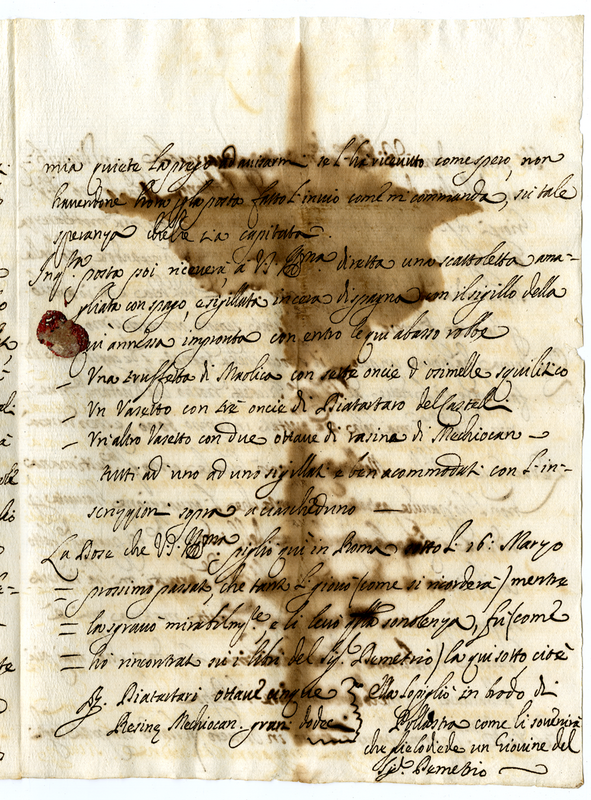 mia quiete la prego ad avisarmi se l'ha ricevuto come spero, non
havendone fatto l'invio come m commanda, su tale
speranza che le sia capitata.
posta poi riceverà V. diretta una scattoletta ama-
gliata con spago, e sigillata in cera di spagna con il sigillo della
qui annessa impronta con entro le qui abasso robbe
– Una truffetta di Maolica con sette oncie d'osimelle squilitico
– Un Vasetto con trè oncie di Diatartaro del Castelli
– Un altro Vasetto con due ottave di rasina di Mechiocan –
tutti ad uno ad uno sigillati e ben accommodati con l'in-
scrizzion sopra a ciascheduno —
La Dose che V. pigliò quì in Roma sotto l. 16. Marzo
= prossimo passat, che tant l. giovò (come si ricorderà) mentre
= la sgravò mirabilm.te e li levò quella sonolenza, fu (come
= hò rincontrat su i libri del Sig.r Demetrio) la qui sotto cioè
Diatartari ottave cinque ella lo pigliò in brodo di
Resine Mechiocan. grani dodec. Pollastra come li sovenirà
che gle lo diede un Giovine del
Sig.r Demetrio —